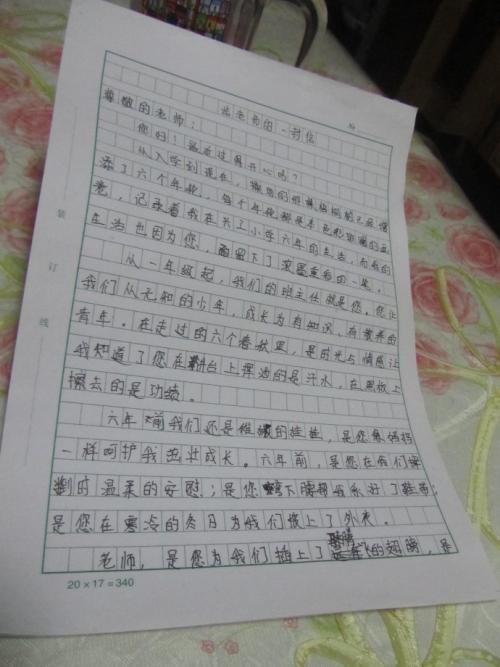 给老师的一封信
尊敬的老师：
您好！最近过得开心吗？
从入学到现在，
添了六个年轮，每个年轮都是
，记录着我在关工小学六年的生活，而我的
生活也因为您，而留下了浓墨重彩的一笔。
从一年级起，我们的班主任就是您。您让
我们从无知的少年，成长为有知识，有教养的
青年。在走过的六个春秋里，是时光与情感让
我知道了您在耕台上挥边的是汗水，在黑板上
擦去的是功绩。
六年前我们还是稚嫩的娃娃，是您像妈妈
一样呵护我茁壮成长。六年前，是您在我们
时温柔的安慰；是您下腰帮我系好了鞋带；
是您在寒冷的冬日为我们披上了外衣。
老师，是您为我们插上了的翅膀，是
20×17=340
装
订
线